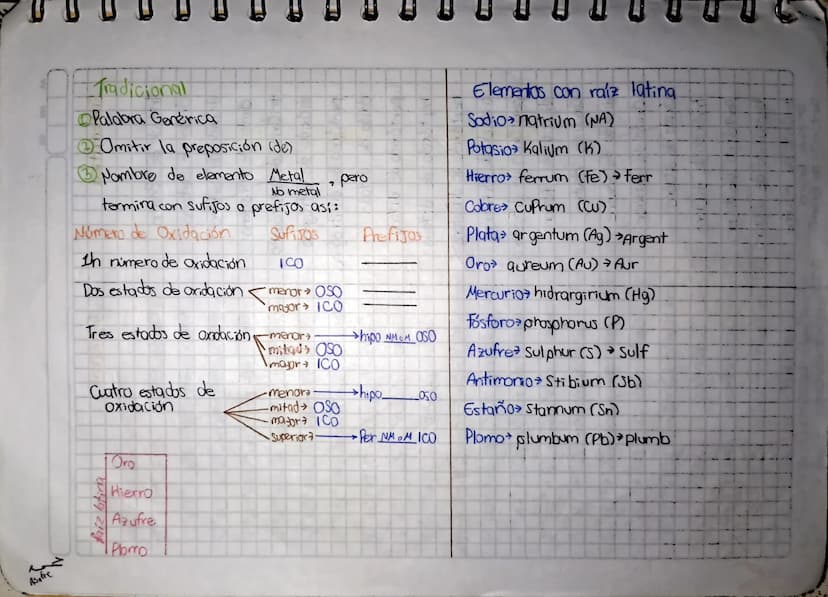 Tradicional
① Palabra Genérica
② Omitir la preposición (de)
③ Nombre de elemento Metal / No metal, pero
termina con sufijos o prefijos así:
Número de Oxidación Sufijos Prefijos
Un número de oxidación ICO
Dos estados de oxidación menor→ OSO
major→ ICO
Tres estados de oxidación menor→ hipo NM o M OSO
mitad→ OSO
major→ ICO
Cuatro estados de
oxidación
menor→ hipo oso
mitad→ OSO
major→ ICO
superior→ Per NM o M ICO
Raíz latina
Oro
Hierro
Azufre
Plomo
Elementos con raíz latina
Sodio→ natrium (NA)
Potasio→ Kalium (K)
Hierro→ ferrum (fe)→ ferr
Cobre→ Cuprum (Cu)
Plata→ argentum (Ag)→Argent
Oro→ aureum (Au)→ Aur
Mercurio→ hidrargirium (Hg)
Fósforo→phosphorus (P)
Azufre→ Sulphur (S)→ sulf
Antimonio→ Stibium (Sb)
Estaño→ Stannum (Sn)
Plomo→ plumbum (Pb)→plumb